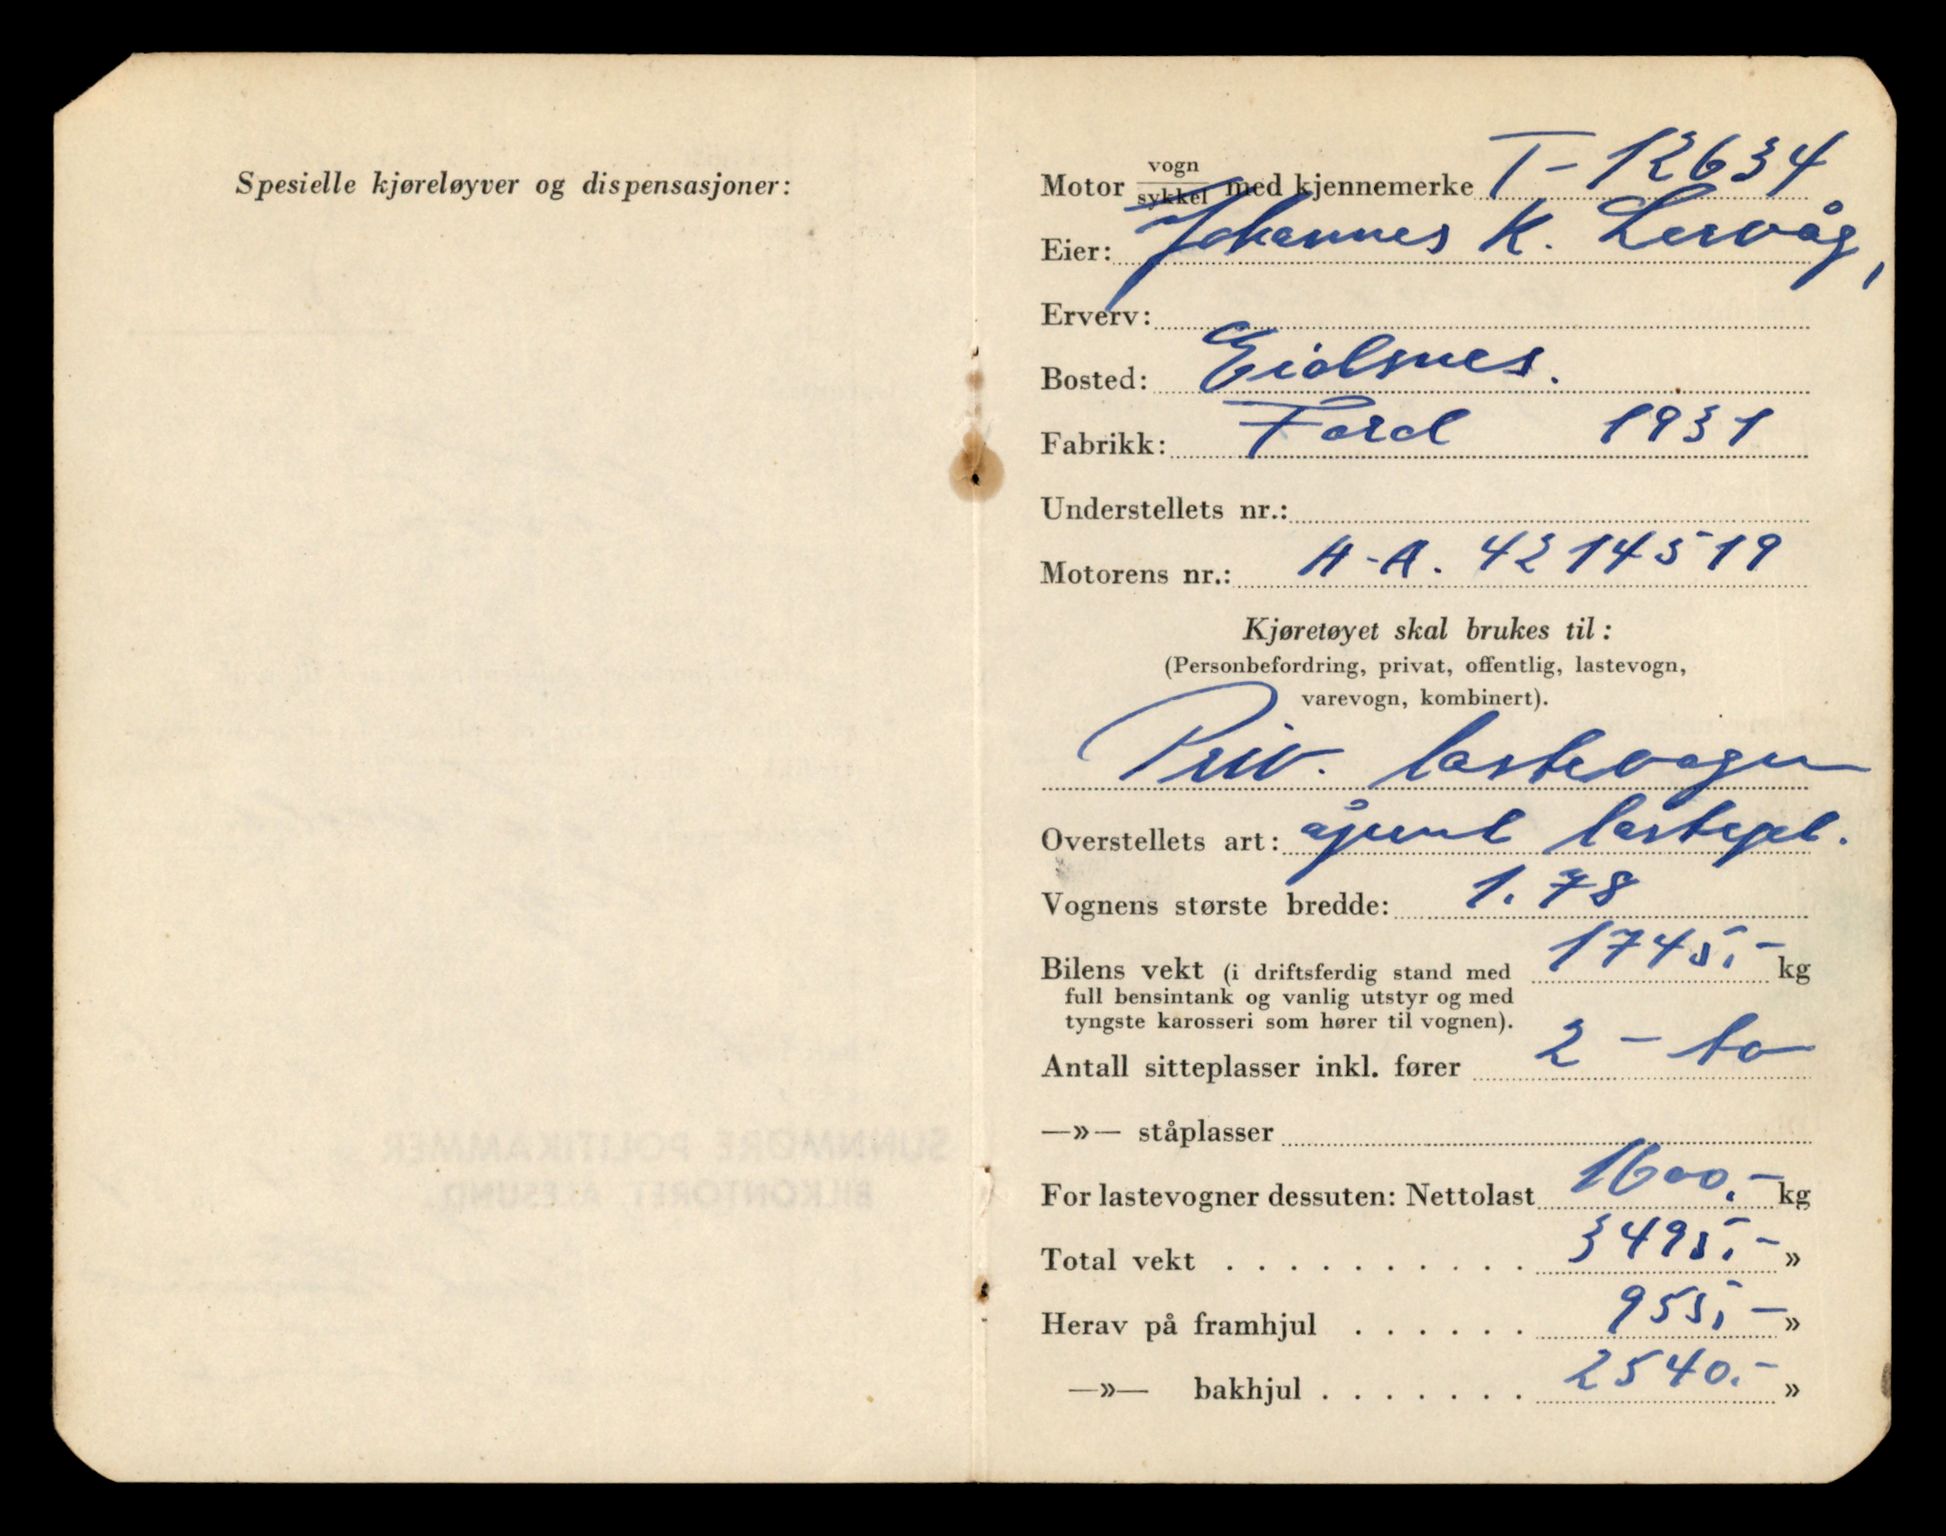 Spesielle kjøreløyver og dispensasjoner:
Motor vogn/sykkel med kjennemerke T-12634
Eier: Johannes K. Lervåg,
Erverv:
Bosted: Eidsnes.
Fabrikk: Ford 1931
Understellets nr.:
Motorens nr.: A-A. 4214519
Kjøretøyet skal brukes til:
(Personbefordring, privat, offentlig, lastevogn,
varevogn, kombinert).
Priv. lastevogn
Overstellets art: åpent lastepl.
Vognens største bredde: 1.78
Bilens vekt (i driftsferdig stand med 1745,- kg
full bensintank og vanlig utstyr og med
tyngste karosseri som hører til vognen).
Antall sitteplasser inkl. fører 2 - to
—»— ståplasser
For lastevogner dessuten: Nettolast 1600,- kg
Total vekt . . . . . . . . . . 3495,- »
Herav på framhjul . . . . . . 955,- »
—»— bakhjul . . . . . . . 2540.- »
SUNNMØRE POLITIKAMMER
BILKONTORET ÅLESUND